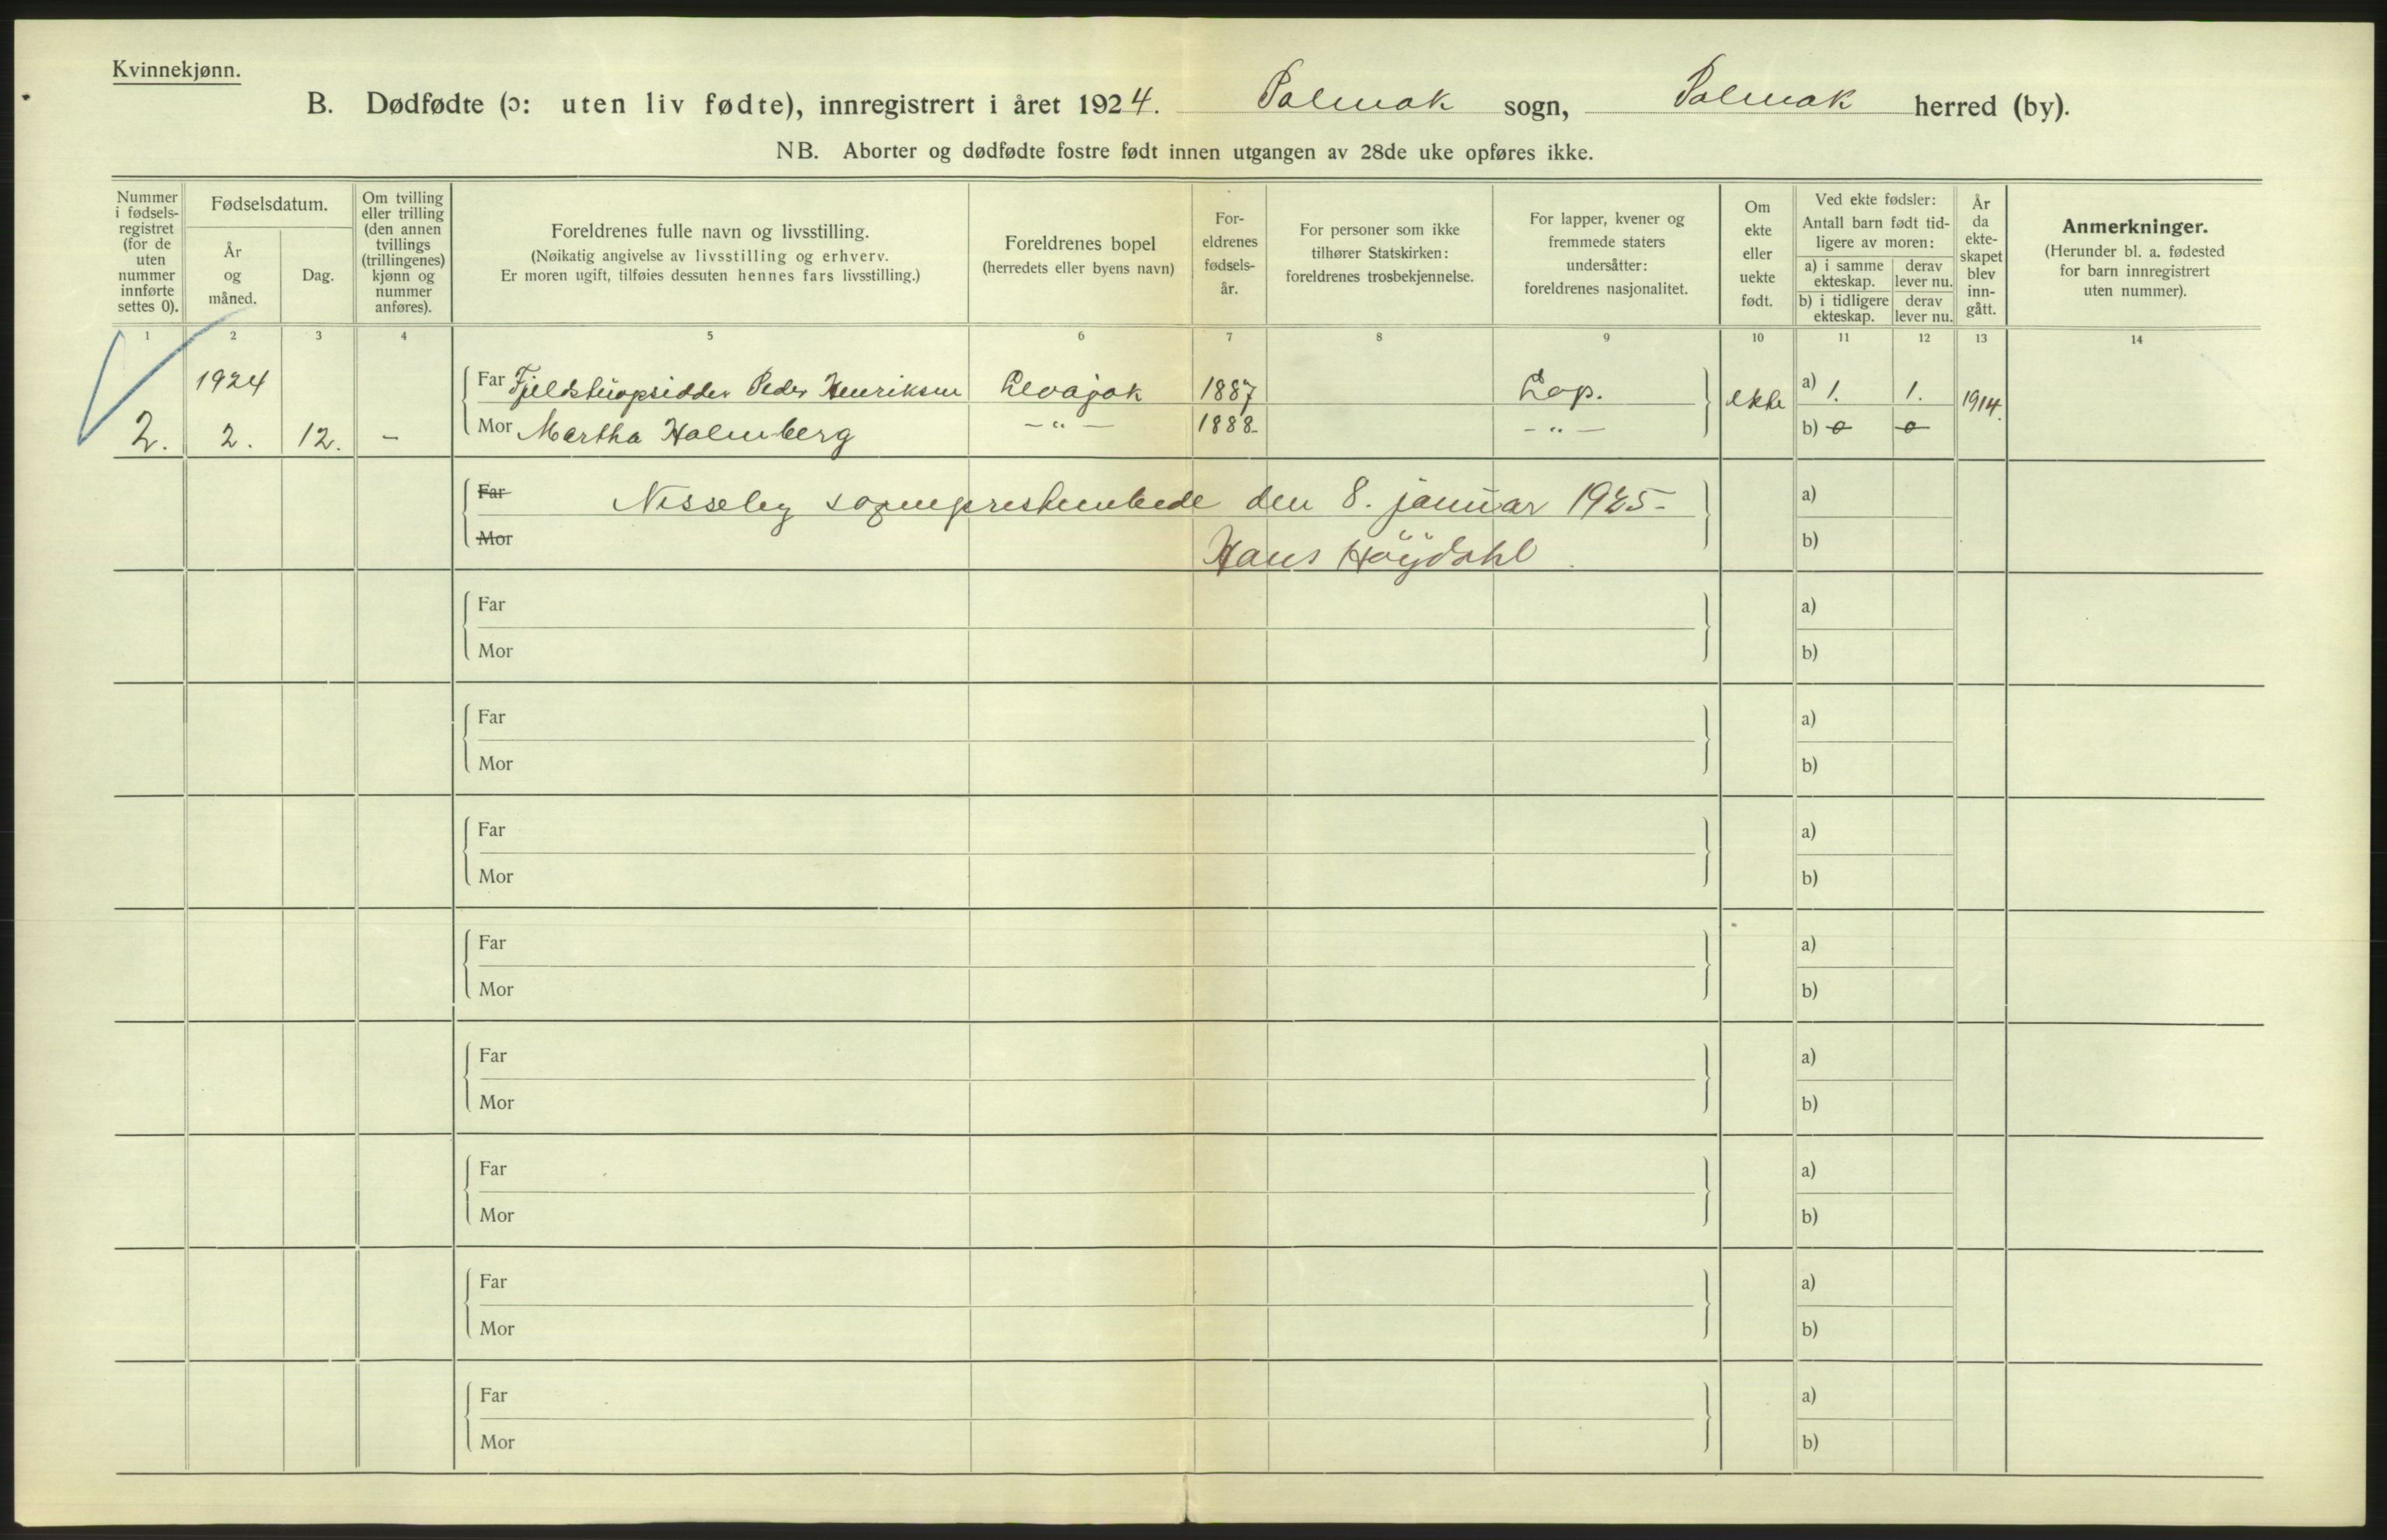 Kvinnekjønn.
B. Dødfødte (ɔ: uten liv fødte), innregistrert i året 1924. Polmak sogn, Polmak herred (by).
NB. Aborter og dødfødte fostre født innen utgangen av 28de uke opføres ikke.
Nummer i fødsels-registret (for de uten nummer innførte settes 0).
Fødselsdatum.
År og måned.
Dag.
Om tvilling eller trilling (den annen tvillings (trillingenes) kjønn og nummer anføres).
Foreldrenes fulle navn og livsstilling.
(Nøikatig angivelse av livsstilling og erhverv.
Er moren ugift, tilføies dessuten hennes fars livsstilling.)
Foreldrenes bopel
(herredets eller byens navn)
For-eldrenes fødsels-år.
For personer som ikke tilhører Statskirken: foreldrenes trosbekjennelse.
For lapper, kvener og fremmede staters undersåtter: foreldrenes nasjonalitet.
Om ekte eller uekte født.
Ved ekte fødsler:
Antall barn født tid-ligere av moren:
a) i samme ekteskap.
derav lever nu.
b) i tidligere ekteskap.
derav lever nu.
År da ekte-skapet blev inn-gått.
Anmerkninger.
(Herunder bl. a. fødested for barn innregistrert uten nummer).
1 2 3 4 5 6 7 8 9 10 11 12 13 14
1924 Far Peder Henriksen Levajok 1887 Lap. ekte a) 1. 1. 1914.
2. 2. 12. – Mor Martha Holmberg – " – 1888 – " – b) 0 0
Far Nesseby sogneprestembede den 8. januar 1925 a)
Mor Hans Höydahl b)
Far a)
Mor b)
Far a)
Mor b)
Far a)
Mor b)
Far a)
Mor b)
Far a)
Mor b)
Far a)
Mor b)
Far a)
Mor b)
Far a)
Mor b)